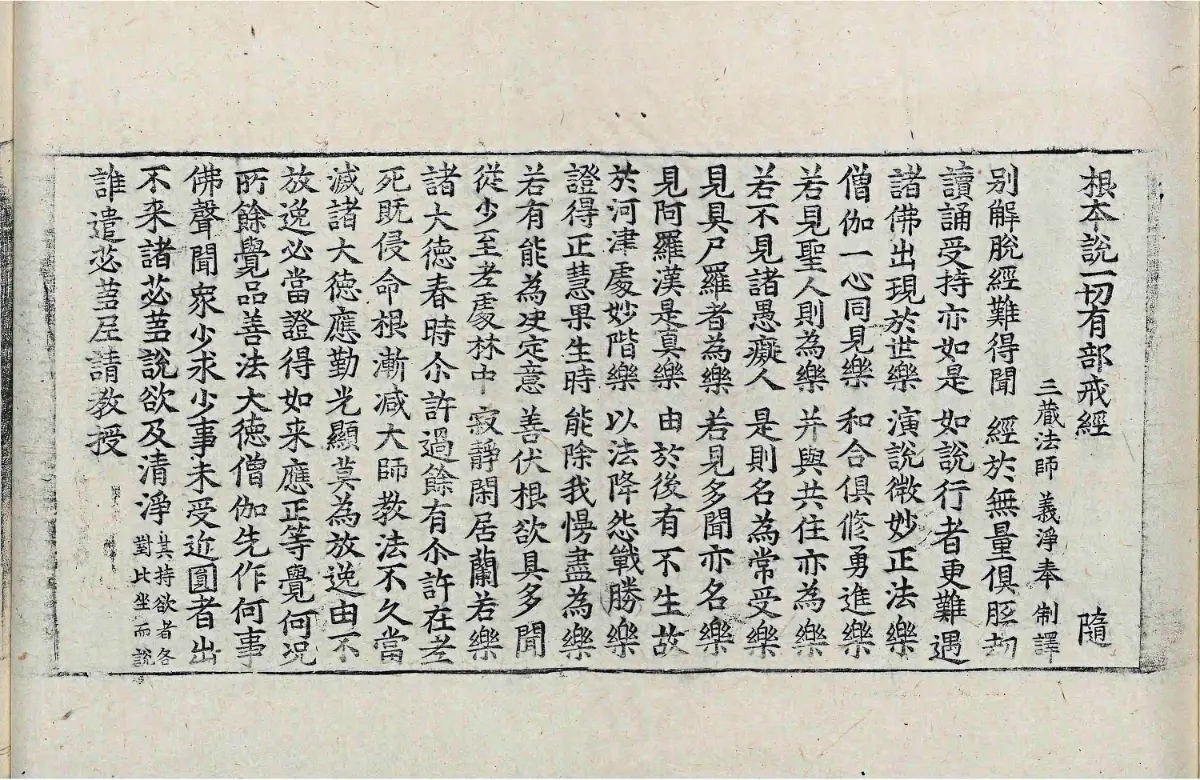 根本說一切有部戒經 隨
三藏法師 義淨奉 制譯
別解脫經難得聞 經於無量俱胝劫
讀誦受持亦如是 如說行者更難遇
諸佛出現於世樂 演說微妙正法樂
僧伽一心同見樂 和合俱修勇進樂
若見聖人則為樂 并與共住亦為樂
若不見諸愚癡人 是則名為常受樂
見具尸羅者為樂 若見多聞亦名樂
見阿羅漢是真樂 由於後有不生故
於河津處妙階樂 以法降怨戰勝樂
證得正慧果生時 能除我慢盡為樂
若有能為决定意 善伏根欲具多聞
從少至老處林中 寂靜閑居蘭若樂
諸大德春時尒許過餘有尒許在老
死既侵命根漸減大師教法不久當
滅諸大德應勤光顯莫為放逸由不
放逸必當證得如来應正等覺何况
所餘覺品善法大德僧伽先作何事
佛聲聞衆少求少事未受近圓者出
不来諸苾芻說欲及清淨 其持欲者各對比坐而說
誰遣苾芻尼請教授